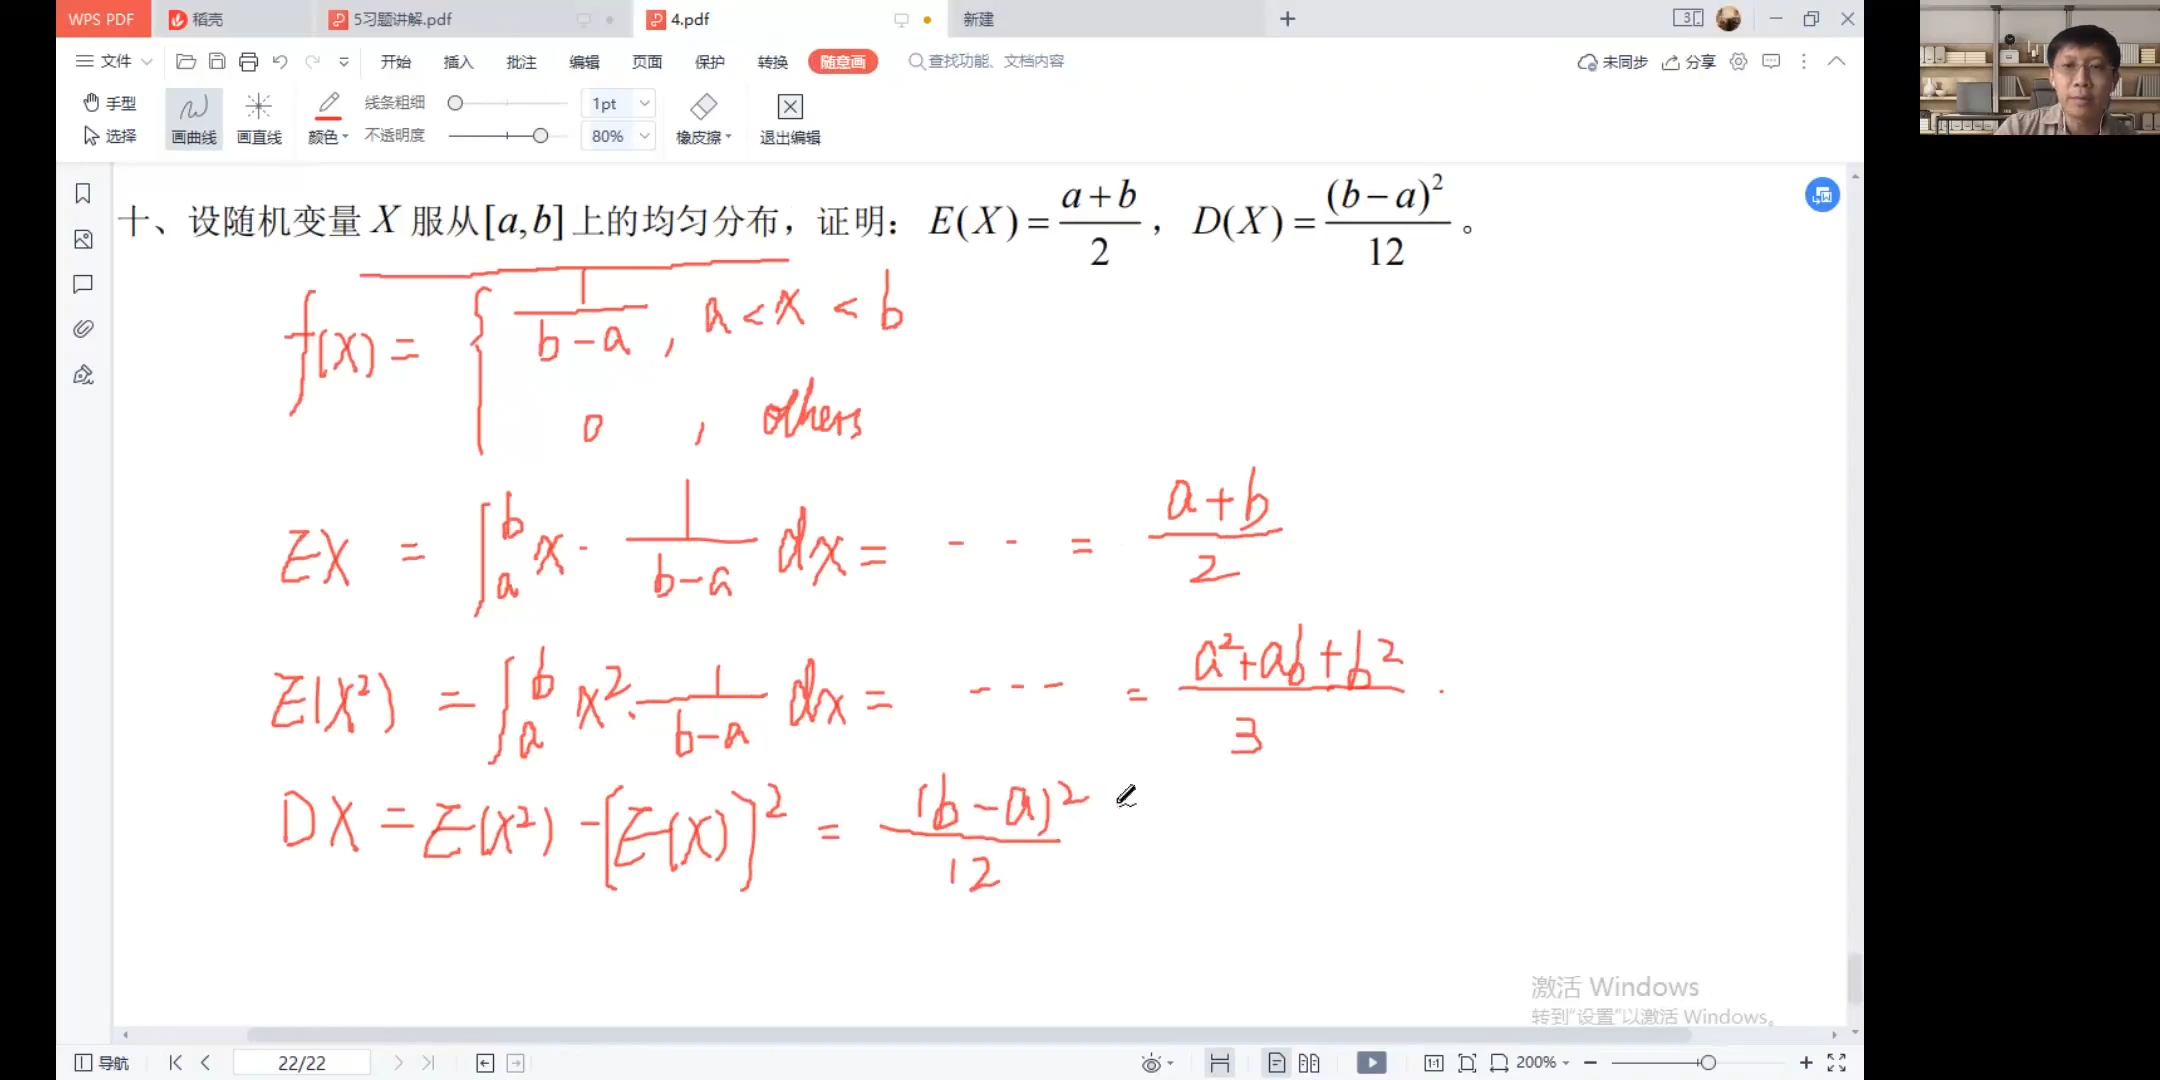 WPS PDF 稻壳 5习题讲解.pdf 4.pdf 新建 +
文件 开始 插入 批注 编辑 页面 保护 转换 随意画 查找功能、文档内容 未同步 分享
手型 选择 画曲线 画直线 颜色 线条粗细 1pt 不透明度 80% 橡皮擦 退出编辑
十、设随机变量 X 服从[a,b]上的均匀分布，证明：E(X)=\frac{a+b}{2}，D(X)=\frac{(b-a)^2}{12}。
f(x) = { \frac{1}{b-a}, a<x<b
0, others
EX = ∫_a^b x·\frac{1}{b-a}dx = -- = \frac{a+b}{2}
E(X²) = ∫_a^b x²·\frac{1}{b-a}dx = --- = \frac{a²+ab+b²}{3}.
DX = E(X²) - [E(X)]² = \frac{(b-a)²}{12}
激活 Windows
转到“设置”以激活 Windows。
导航 22/22 1:1 200% - +